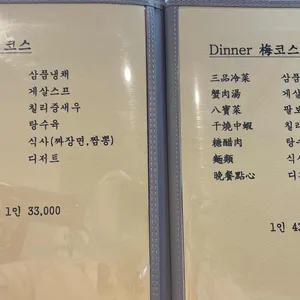 코스
삼품냉채
게살스프
칠리중새우
탕수육
식사(짜장면,짬뽕)
디저트
1인 33,000
Dinner 梅코스
三品冷菜 삼품
蟹肉湯 게살
八寶菜 팔보
干燒中蝦 칠리
糖醋肉 탕수
麵類 식사
晚餐點心 디저
1인 4